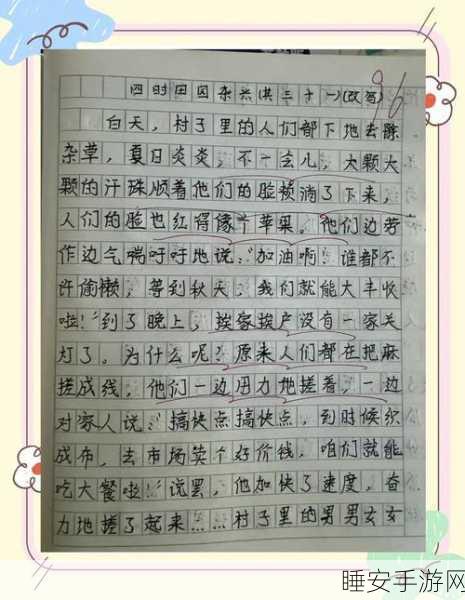 四时田园杂兴(其三十一)(改写)
96
白天，村子里的人们都下地去除
杂草，夏日炎炎，不一会儿，大颗大
颗的汗珠顺着他们的脸颊淌了下来，
人们的脸也红得像个苹果。他们边劳
作边气喘吁吁地说：“加油啊！谁都不
许偷懒，等到秋天，我们就能大丰收
啦！”到了晚上，挨家挨户没有一家关
灯了。为什么呢？原来人们都在把麻
搓成线，他们一边用力地搓着，一边
对家人说：“搞快点搞快点，到时候织
成布，去市场卖个好价钱，咱们就能
吃大餐啦！”说罢，他加快了速度，奋
力地搓了起来……村子里的男男女女
睡安手游网